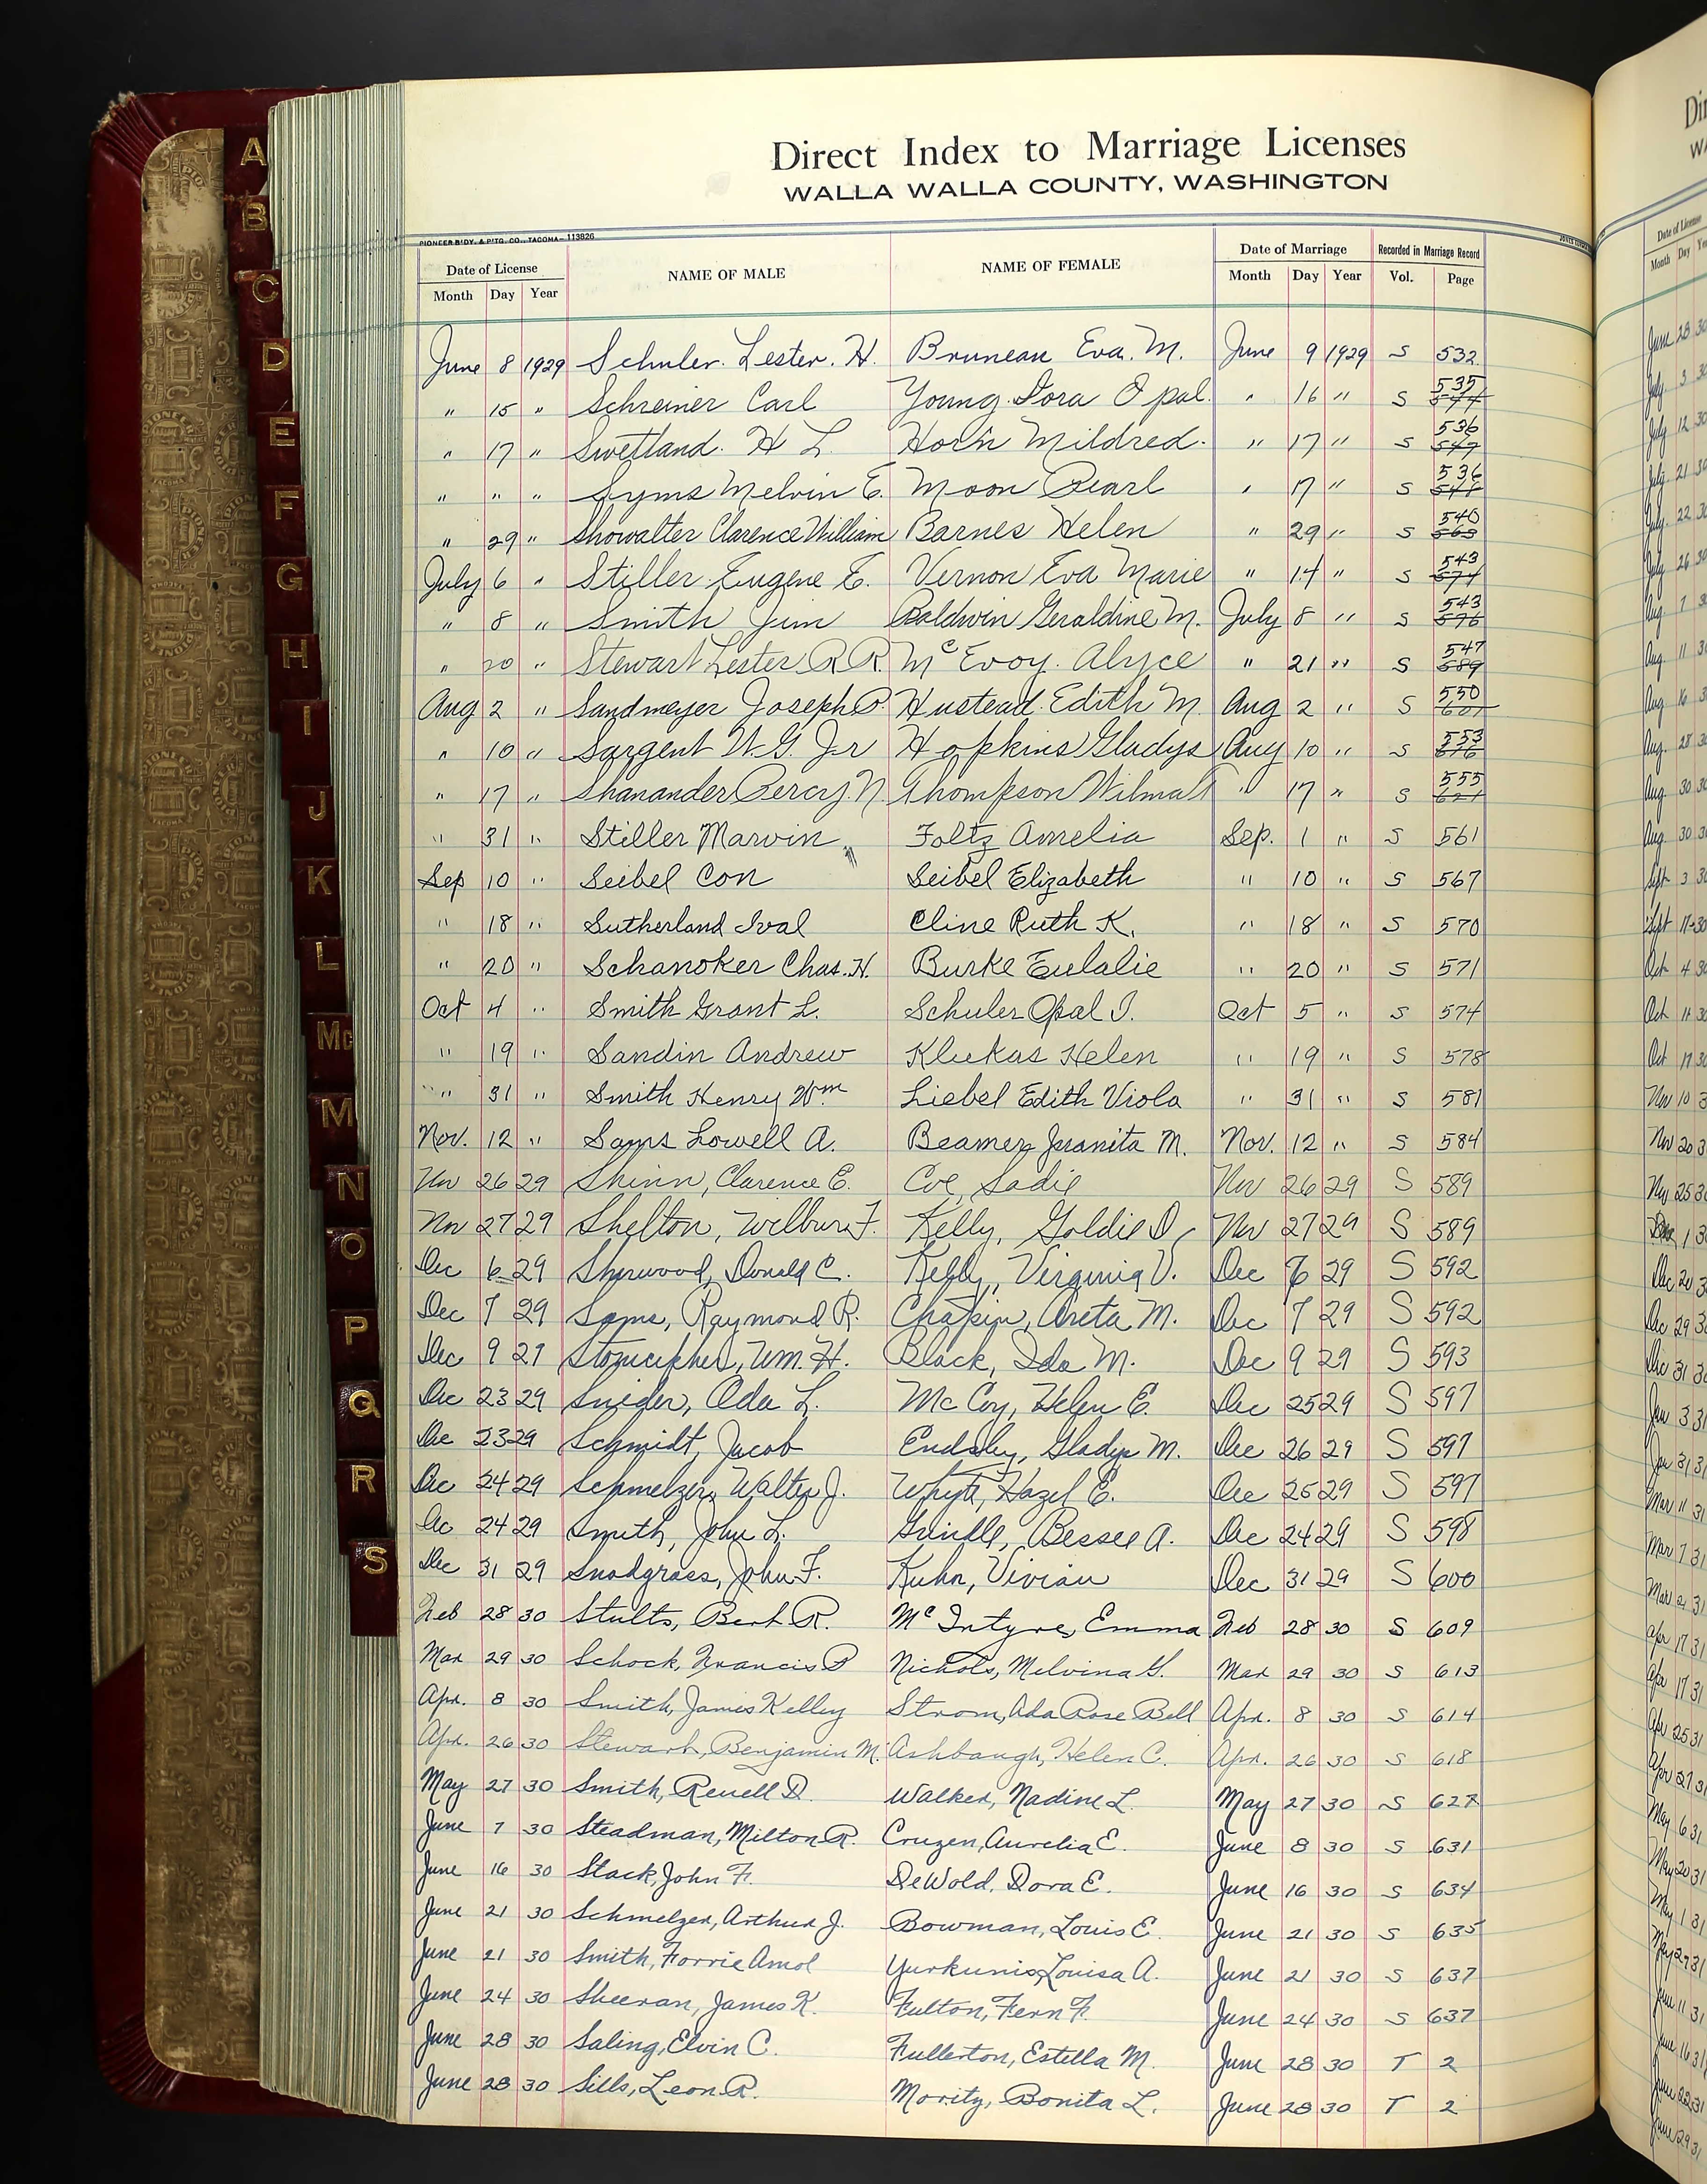 Direct Index to Marriage Licenses
WALLA WALLA COUNTY, WASHINGTON
PIONEER B'DY. & P'TG. CO., TACOMA—113826
Date of License NAME OF MALE NAME OF FEMALE Date of Marriage Recorded in Marriage Record
Month Day Year Month Day Year Vol. Page
June 8 1929 Schuler. Lester. H. Bruneau Eva. M. June 9 1929 S 532
" 15 " Schreiner Carl Young. Dora Opal. " 16 " S 535 544
" 17 " Swetland. H L. Horn Mildred. " 17 " S 536 547
" " " Syms Melvin E. Moon Pearl " 17 " S 536 548
" 29 " Showalter Clarence William Barnes Helen " 29 " S 540 563
July 6 " Stiller Eugene E. Vernon Eva Marie " 14 " S 543 574
" 8 " Smith Jim Baldwin Geraldine M. July 8 " S 543 576
" 20 " Stewart Lester R R. McEvoy. Alyce " 21 " S 547 589
Aug 2 " Sandmeyer Joseph P. Hustead. Edith M. Aug 2 " S 550 601
" 10 " Sargent W. G. Jr Hopkins Gladys Aug 10 " S 553 616
" 17 " Shanander Percy. N Thompson Wilma T " 17 " S 555 621
" 31 " Stiller Marvin Foltz Amelia Sep. 1 " S 561
Sep 10 " Seibel Con Seibel Elizabeth " 10 " S 567
" 18 " Sutherland Ival Cline Ruth K. " 18 " S 570
" 20 " Schanoker Chas. H. Burke Eulalie " 20 " S 571
Oct 4 " Smith Grant L. Schuler Opal I. Oct 5 " S 574
" 19 " Sandin Andrew Klukas Helen " 19 " S 578
" 31 " Smith Henry Wm Liebel Edith Viola " 31 " S 581
Nov. 12 " Sams Lowell A. Beamer Juanita M. Nov. 12 " S 584
Nov 26 29 Shinn, Clarence E. Coe, Sadie Nov 26 29 S 589
Nov 27 29 Shelton, Wilbur F. Kelly, Goldie D. Nov 27 29 S 589
Dec 6 29 Sherwood, Donald C. Kelly, Virginia V. Dec 6 29 S 592
Dec 7 29 Sams, Raymond R. Chapin, Areta M. Dec 7 29 S 592
Dec 9 29 Stonecipher, Wm. H. Black, Ida M. Dec 9 29 S 593
Dec 23 29 Snider, Oda L. McCoy, Helen E. Dec 25 29 S 597
Dec 23 29 Schmidt, Jacob Endsley, Gladys M. Dec 26 29 S 597
Dec 24 29 Schmelzer, Walter J. Whyte, Hazel E. Dec 25 29 S 597
Dec 24 29 Smith, John L. Grindle, Bessee A. Dec 24 29 S 598
Dec 31 29 Snodgrass, John F. Kuhn, Vivian Dec 31 29 S 600
Feb 28 30 Stults, Bert R. McIntyre, Emma Feb 28 30 S 609
Mar 29 30 Schock, Francis P Nichols, Melvina G. Mar 29 30 S 613
Apr. 8 30 Smith, James Kelley Strom, Ada Rose Bell Apr. 8 30 S 614
Apr. 26 30 Stewart, Benjamin M. Ashbaugh, Helen C. Apr. 26 30 S 618
May 27 30 Smith, Revell D. Walker, Nadine L. May 27 30 S 627
June 7 30 Steadman, Milton R. Cruzen, Aurelia E. June 8 30 S 631
June 16 30 Stack, John F. DeWold, Dora E. June 16 30 S 634
June 21 30 Schmelzer, Arthur J. Bowman, Louis E. June 21 30 S 635
June 21 30 Smith, Forrie Amol Yurkunis, Louisa A. June 21 30 S 637
June 24 30 Sheeran, James K. Fulton, Fern F. June 24 30 S 637
June 28 30 Saling, Elvin C. Fullerton, Estella M. June 28 30 T 2
June 28 30 Sills, Leon R. Moritz, Bonita L. June 28 30 T 2
A
B
C
D
E
F
G
H
I
J
K
L
Mc
M
N
O
P
Q
R
S